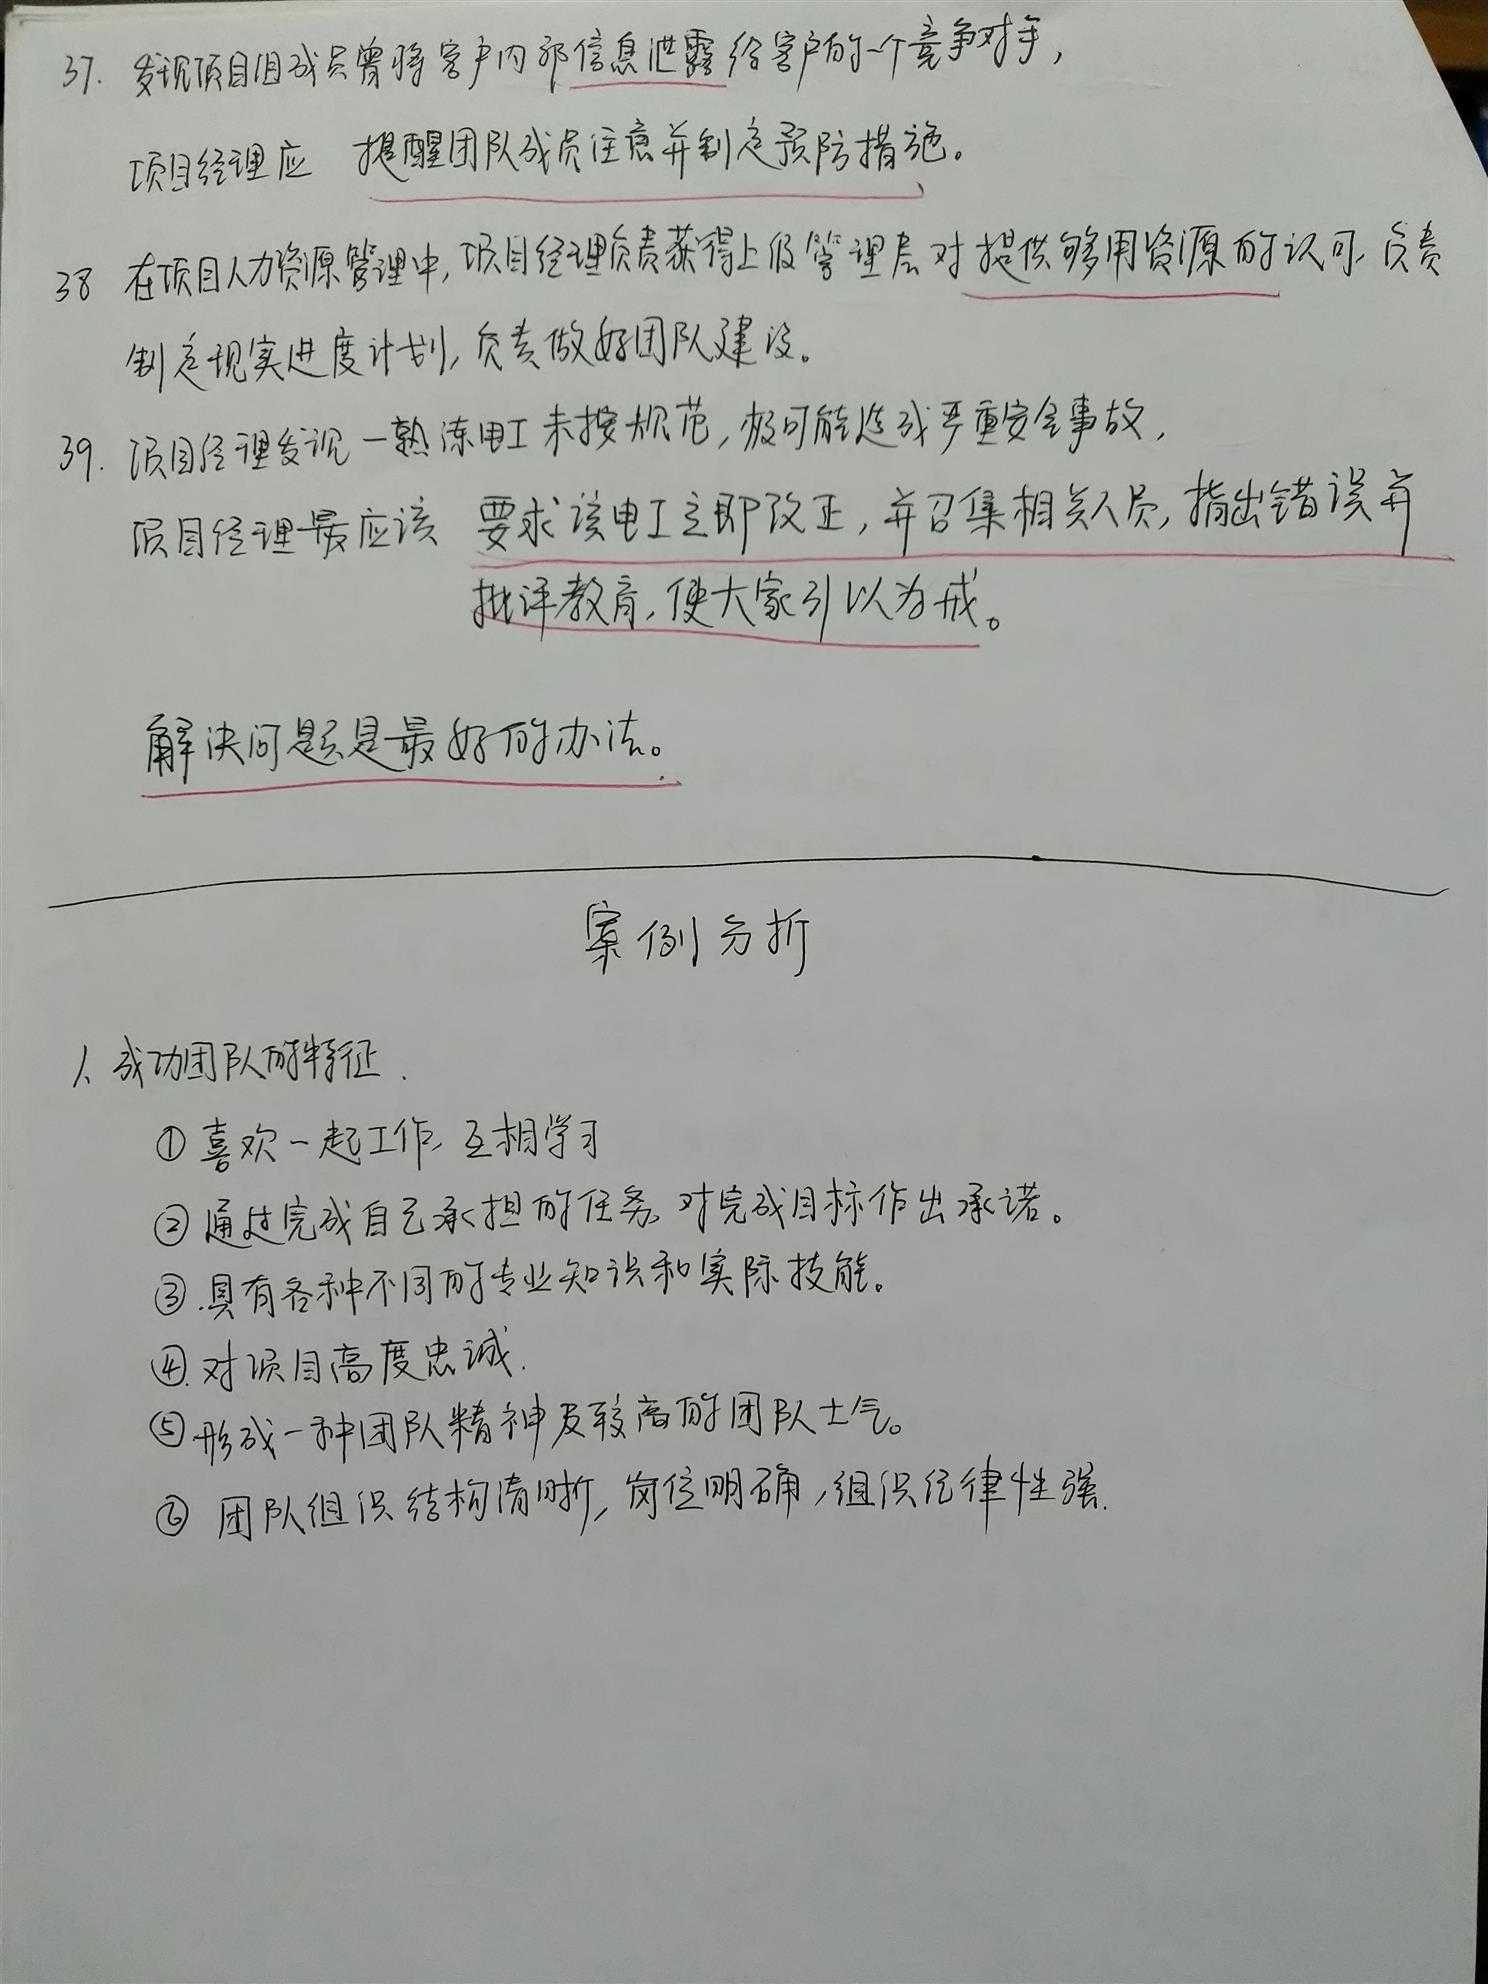 37. 发现项目组成员曾将客户内部信息泄露给客户的一个竞争对手,
项目经理应 提醒团队成员注意并制定预防措施。
38 在项目人力资源管理中,项目经理负责获得上级管理层对提供够用资源的认可,负责
制定现实进度计划,负责做好团队建设。
39. 项目经理发现一熟练电工未按规范,极可能造成严重安全事故,
项目经理最应该 要求该电工立即改正,并召集相关人员,指出错误并
批评教育,使大家引以为戒。
解决问题是最好的办法。
案例分析
1、成功团队的特征.
①喜欢一起工作,互相学习
②通过完成自己承担的任务,对完成目标作出承诺。
③.具有各种不同的专业知识和实际技能。
④.对项目高度忠诚.
⑤形成一种团队精神及较高的团队士气。
⑥ 团队组织结构清晰,岗位明确,组织纪律性强.